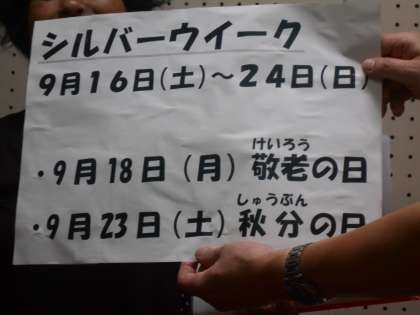 シルバーウイーク
9月16日(土)～24日(日)
けいろう
・9月18日(月)敬老の日
しゅうぶん
・9月23日(土)秋分の日